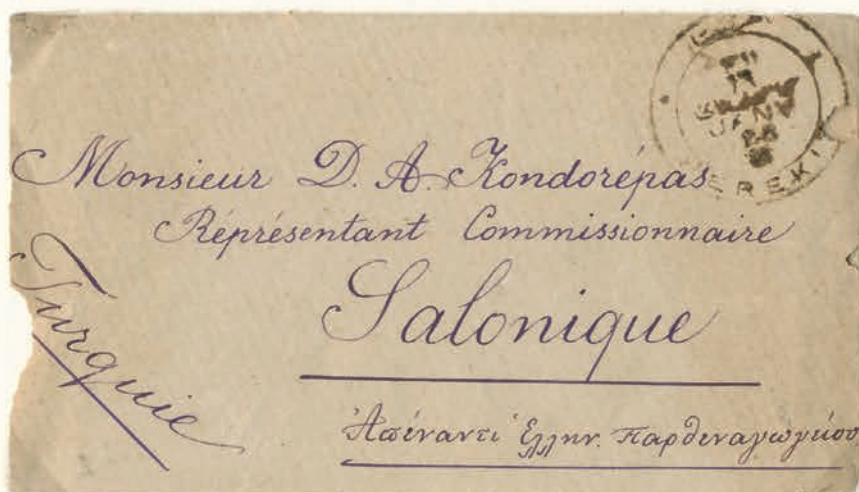 Monsieur D. A. Kondorépas
Réprésentant Commissionnaire
Salonique
Turquie
Ἀπέναντι Ἑλλην. Παρθεναγωγείου
JANV
EREKLI